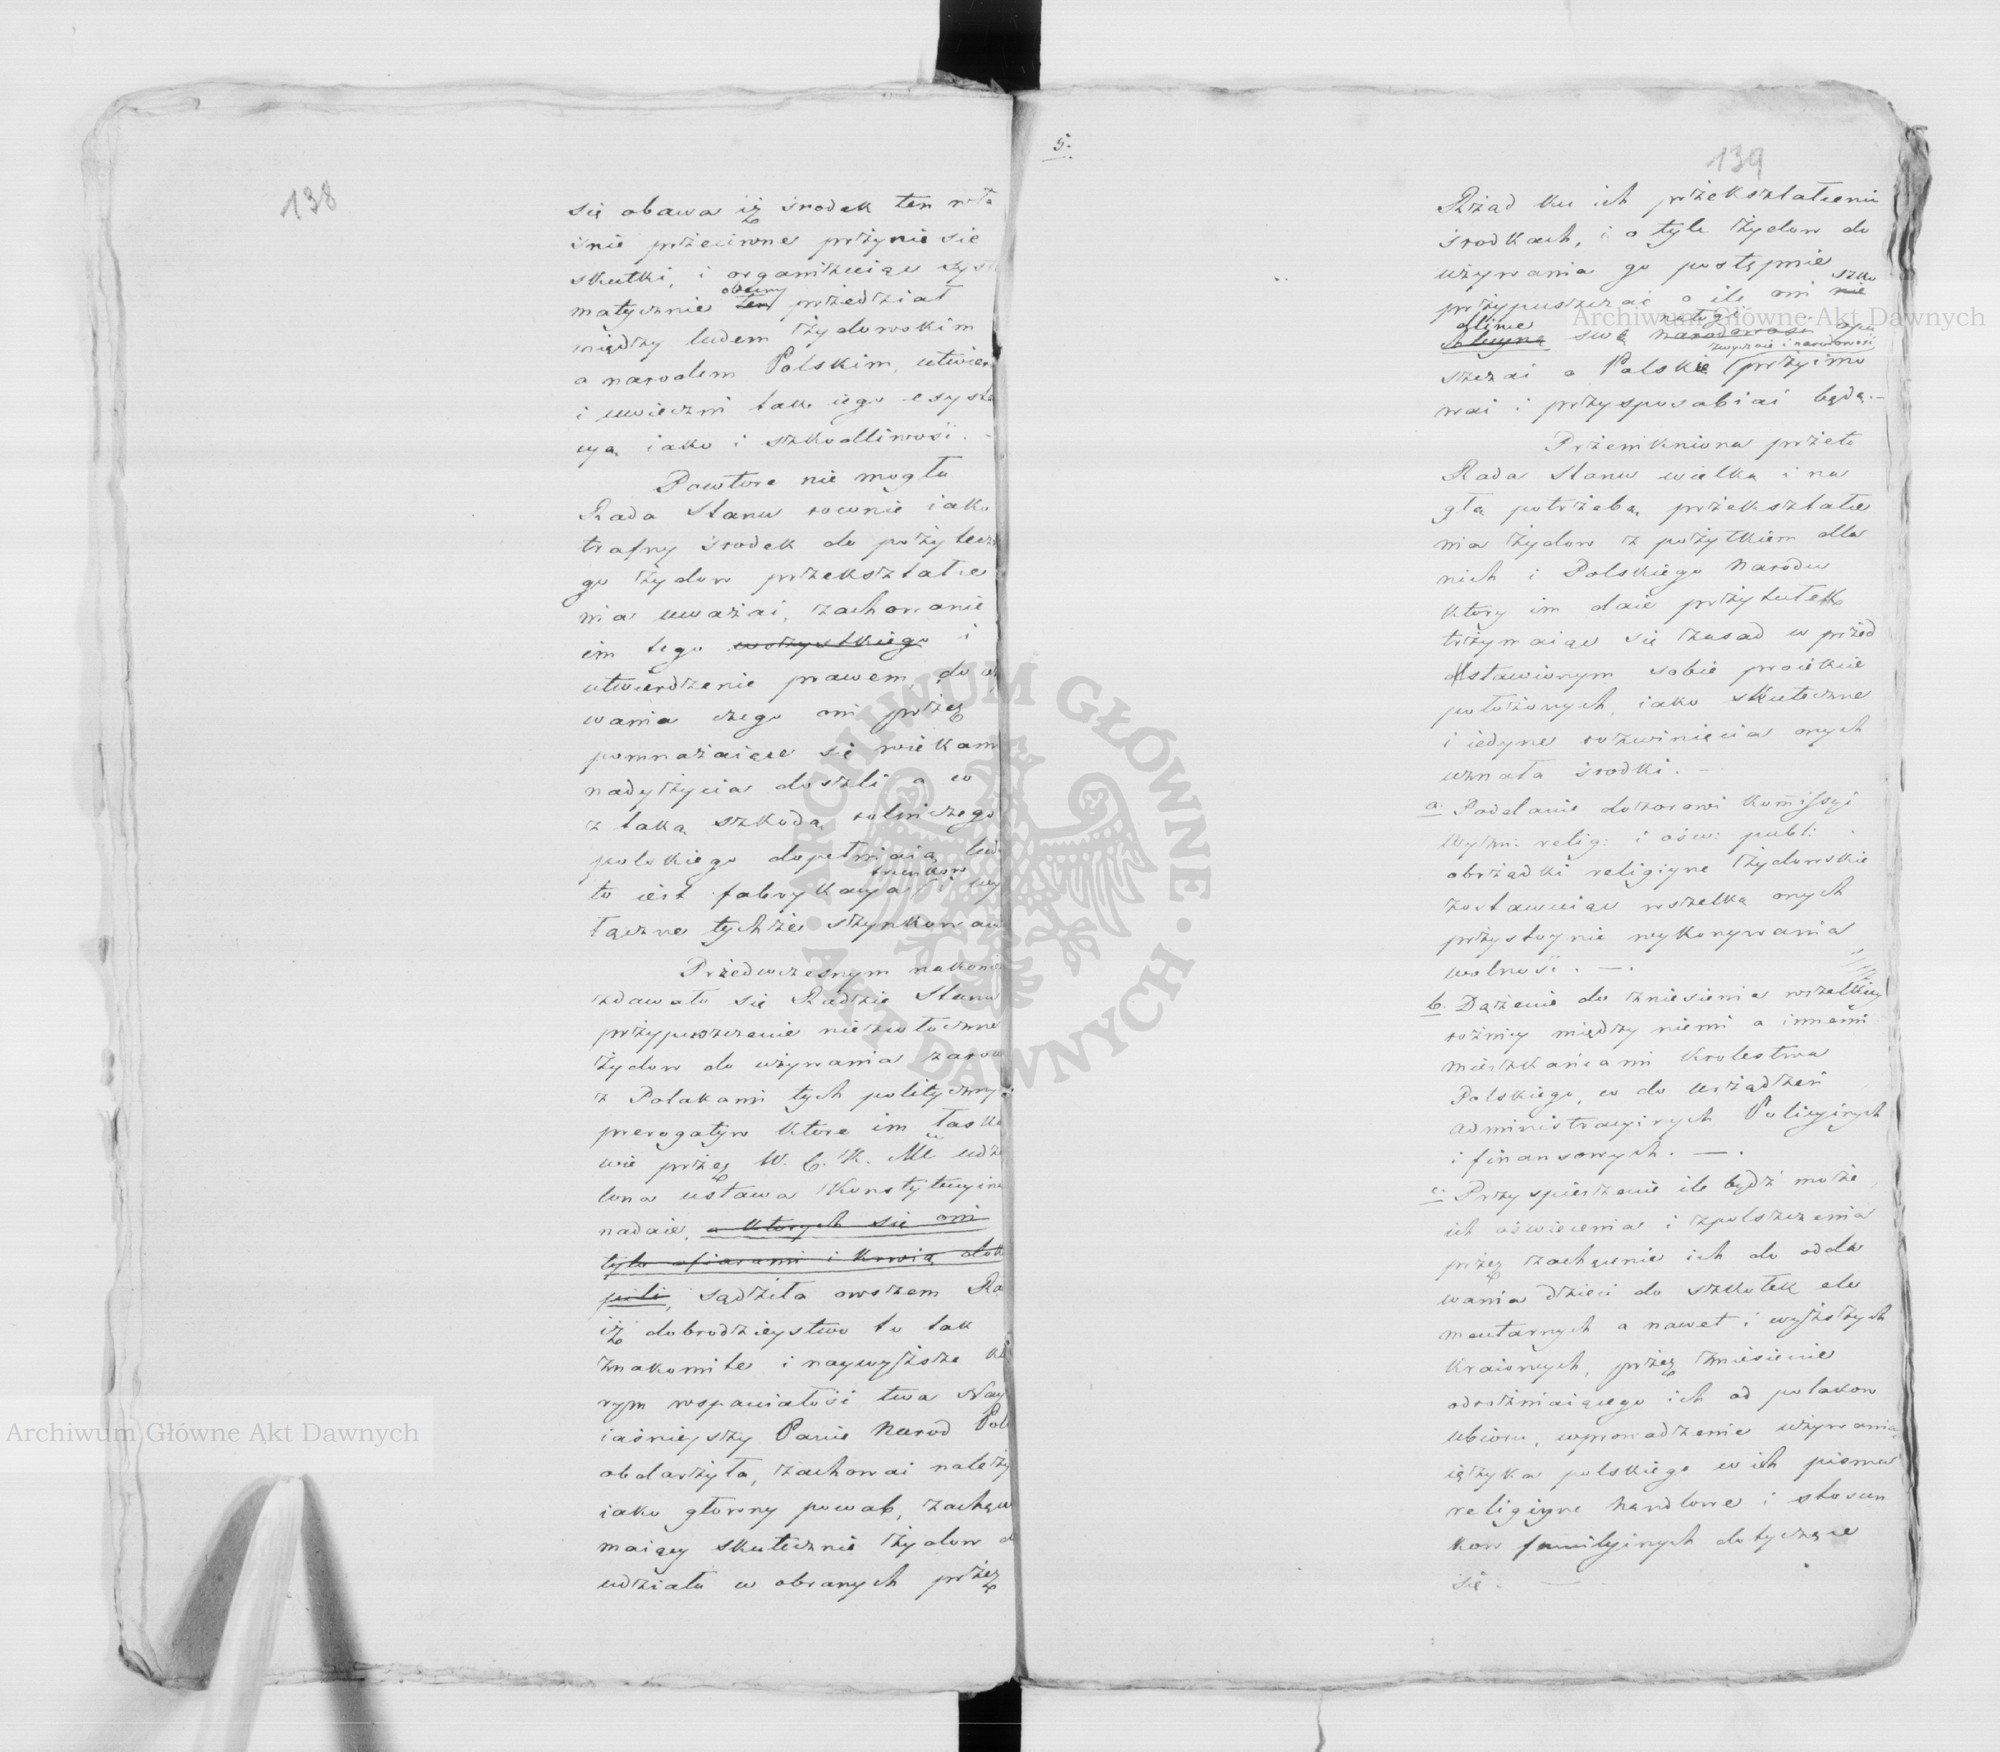 138
się obawa iż środek ten wła
śnie przeciwne przyniesie
skutki, i organizuiąc syste
matycznie obecny ten przedział
między ludem Żydowskim
a narodem Polskim, utwier
i uwieczni tak iego exysten
cyą iako i szkodliwość. -
Powtore nie mogła
Rada Stanu rownie iako
trafny środek do pożyteczne
go Żydow przekształce
nia uważać, zachowanie
im tego wszystkiego i
utwierdzenie prawem, do
wania czego oni przez
pomnażaiące się wiekami
nadużycia doszli a co
z taką szkodą rolniczego
polskiego dopełniaią ludu
to iest fabrykacya trunkow i wy
łączne tychże szynkowanie
Przedwczesnym nakoniec
zdawało się Radzie Stanu
przypuszczenie niezwłoczne
Żydow do używania zarowno
z Polakami tych politycznych
prerogatyw ktore im łaska
wie przez W. C. K. M. udzie
lona ustawa Konstytucyina
nadaie, o ktorych się oni
tylu ofiarami i krwią doku
pili, sądziła owszem Ra
iż dobrodzieystwo to tak
znakomite i naywyższe kto
rym wspaniałość twa Nay
iaśnieyszy Panie Narod Pol
obdarzyła, zachować należy
iako głowny powab, zachęcać
maiący skutecznie Żydow d
udziału w obranych przez
5.
139
Rząd ku ich przekształceniu
środkach, i o tyle Żydow do
używania go postępnie
przypuszczać o ile oni nie szko
dliwe swe narodowość nałogi opu
szczać a Polskie zwyczaie i narodowość przyimo
wać i przysposabiać będą. -
Przenikniona przeto
Rada Stanu wielką i na
głą potrzebą przekształce
nia Żydow z pożytkiem dla
nich i Polskiego Narodu
ktory im daie przytułek
trzymaiąc się zasad w przed
stawionym sobie proiekcie
położonych, iako skuteczne
i iedyne rozwinięcia onych
uznała środki. -
a. Poddanie dozorowi Kommissyi
Wyzn: relig: i ośw: publ:
obrządki religiyne Żydowskie
zostawuiąc wszelką onych
przystoynie wykonywania
wolność. -
b. Dążenie do zniesienia wszelkiey
rożnicy między niemi a innemi
mieszkańcami Krolestwa
Polskiego, co do urządzeń
administracyinych Policyinych
i finansowych. -
c. Przyspieszenie ile bydź może
ich oświecenia i zpolszczenia
przez zachęcenie ich do odda
wania dzieci do szkołek ele
mentarnych a nawet i wyższych
Kraiowych, przez zniesienie
odrożniaiącego ich od polakow
ubioru, wprowadzenie używania
ięzyka polskiego w ich pisma
religiyne handlowe i stosun
kow familyinych dotyczące
się. -
Archiwum Główne Akt Dawnych
Archiwum Główne Akt Dawnych
ARCHIWUM GŁÓWNE AKT DAWNYCH